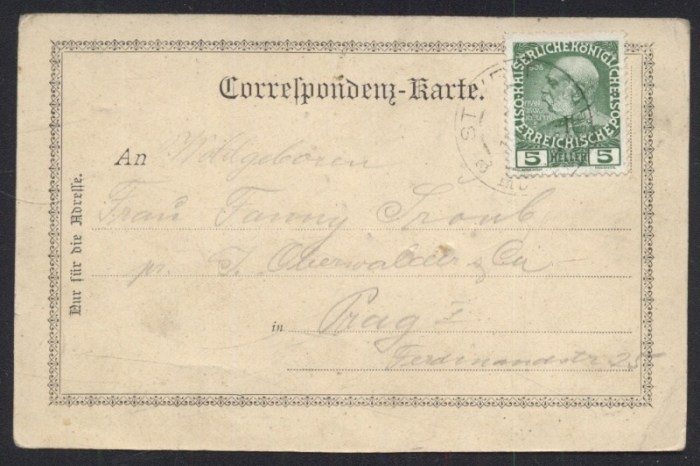 Correspondenz-Karte.
KAISERLICHE KÖNIGLICHE ÖSTERREICHISCHE POST
5 HELLER 5
An Wohlgeboren
Frau Fanny
pr. Oberwalder & Co
in Prag I
Ferdinandstr 25
Nur für die Adresse.